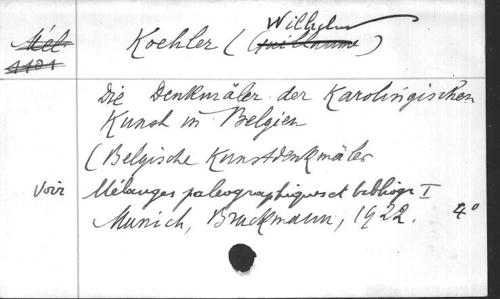 Mel Koehler (Guillaume Wilhelm)
1181
Die Denkmäler der Karolingischen
Kunst in Belgien
(Belgische Kunstdenkmäler
Voir Mélanges paléographiques et bibliogr I
Munich, Bruckmann, 1922. 4°